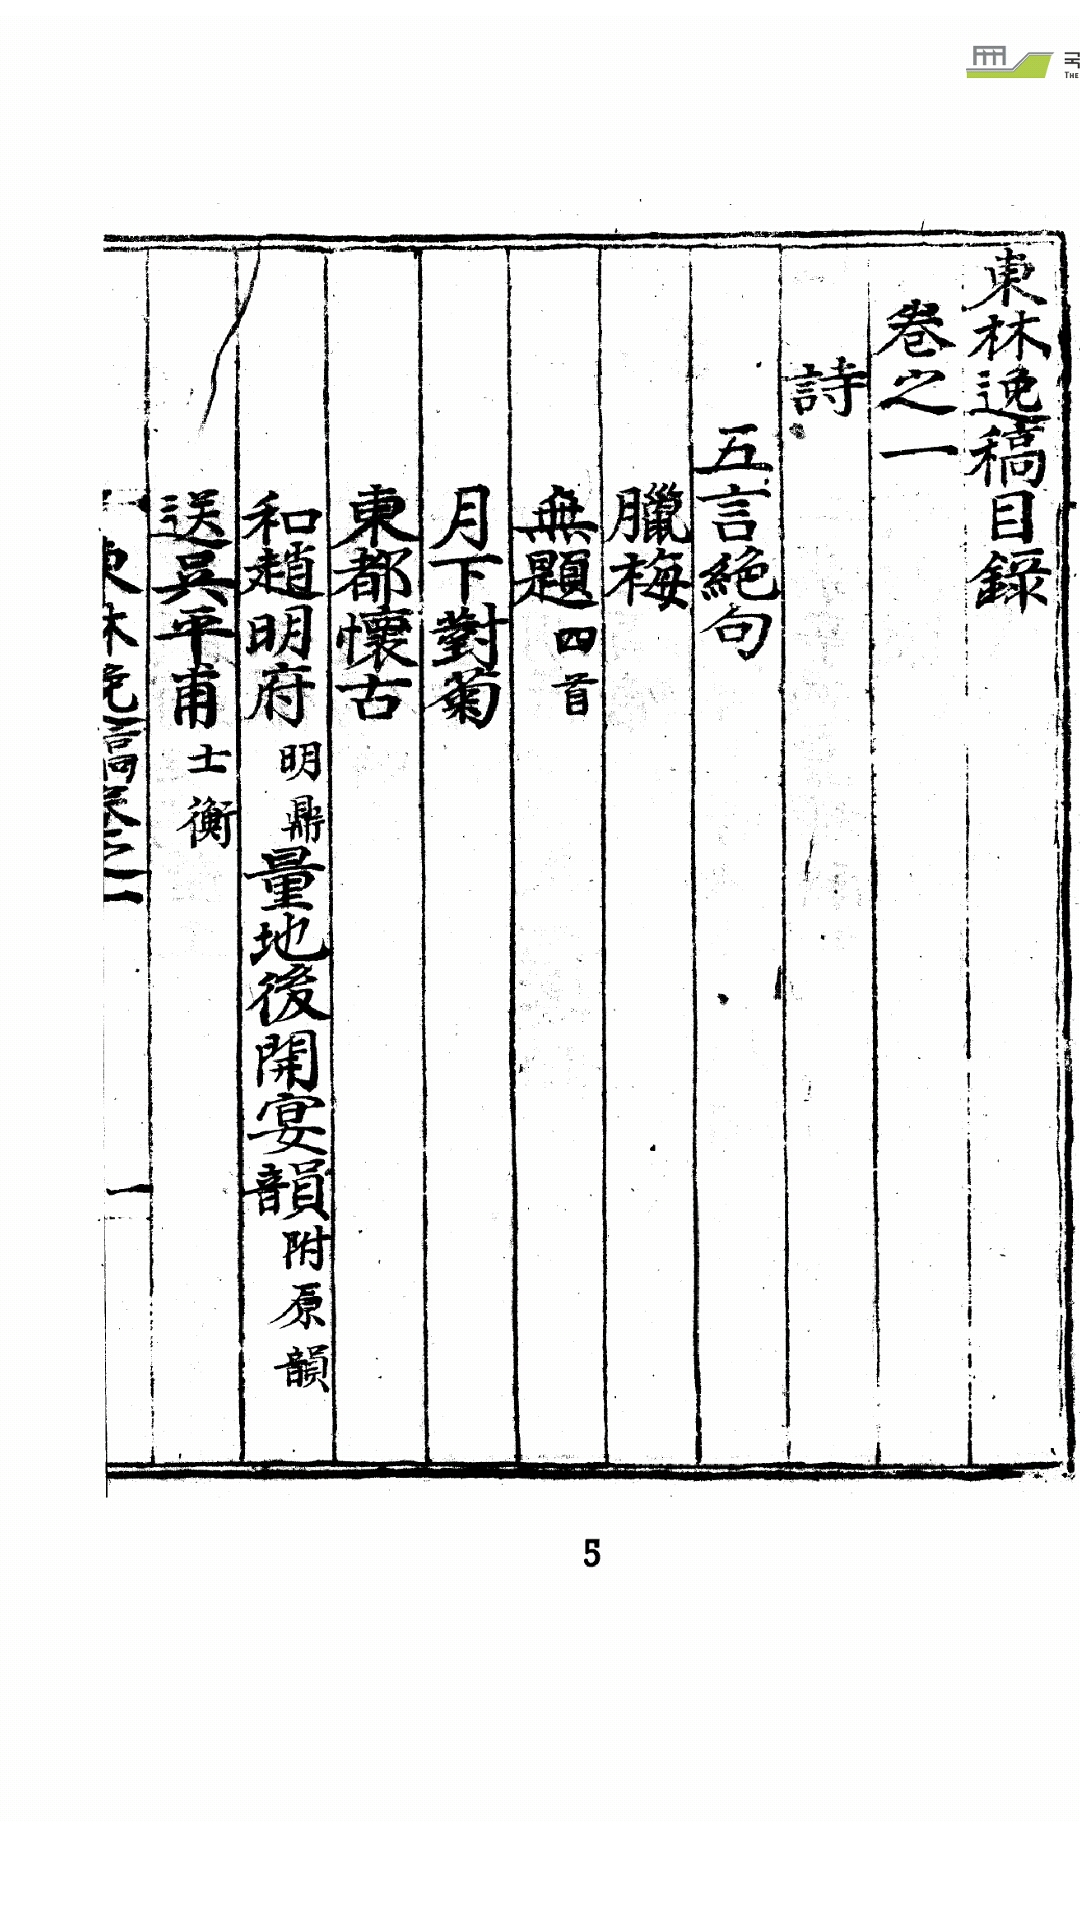 東林逸稿目錄
卷之一
詩
五言絶句
臘梅
無題四首
月下對菊
東都懷古
和趙明府明鼎量地後開宴韻附原韻
送吳平甫士衡
東林逸稿卷之一
一
5
THE